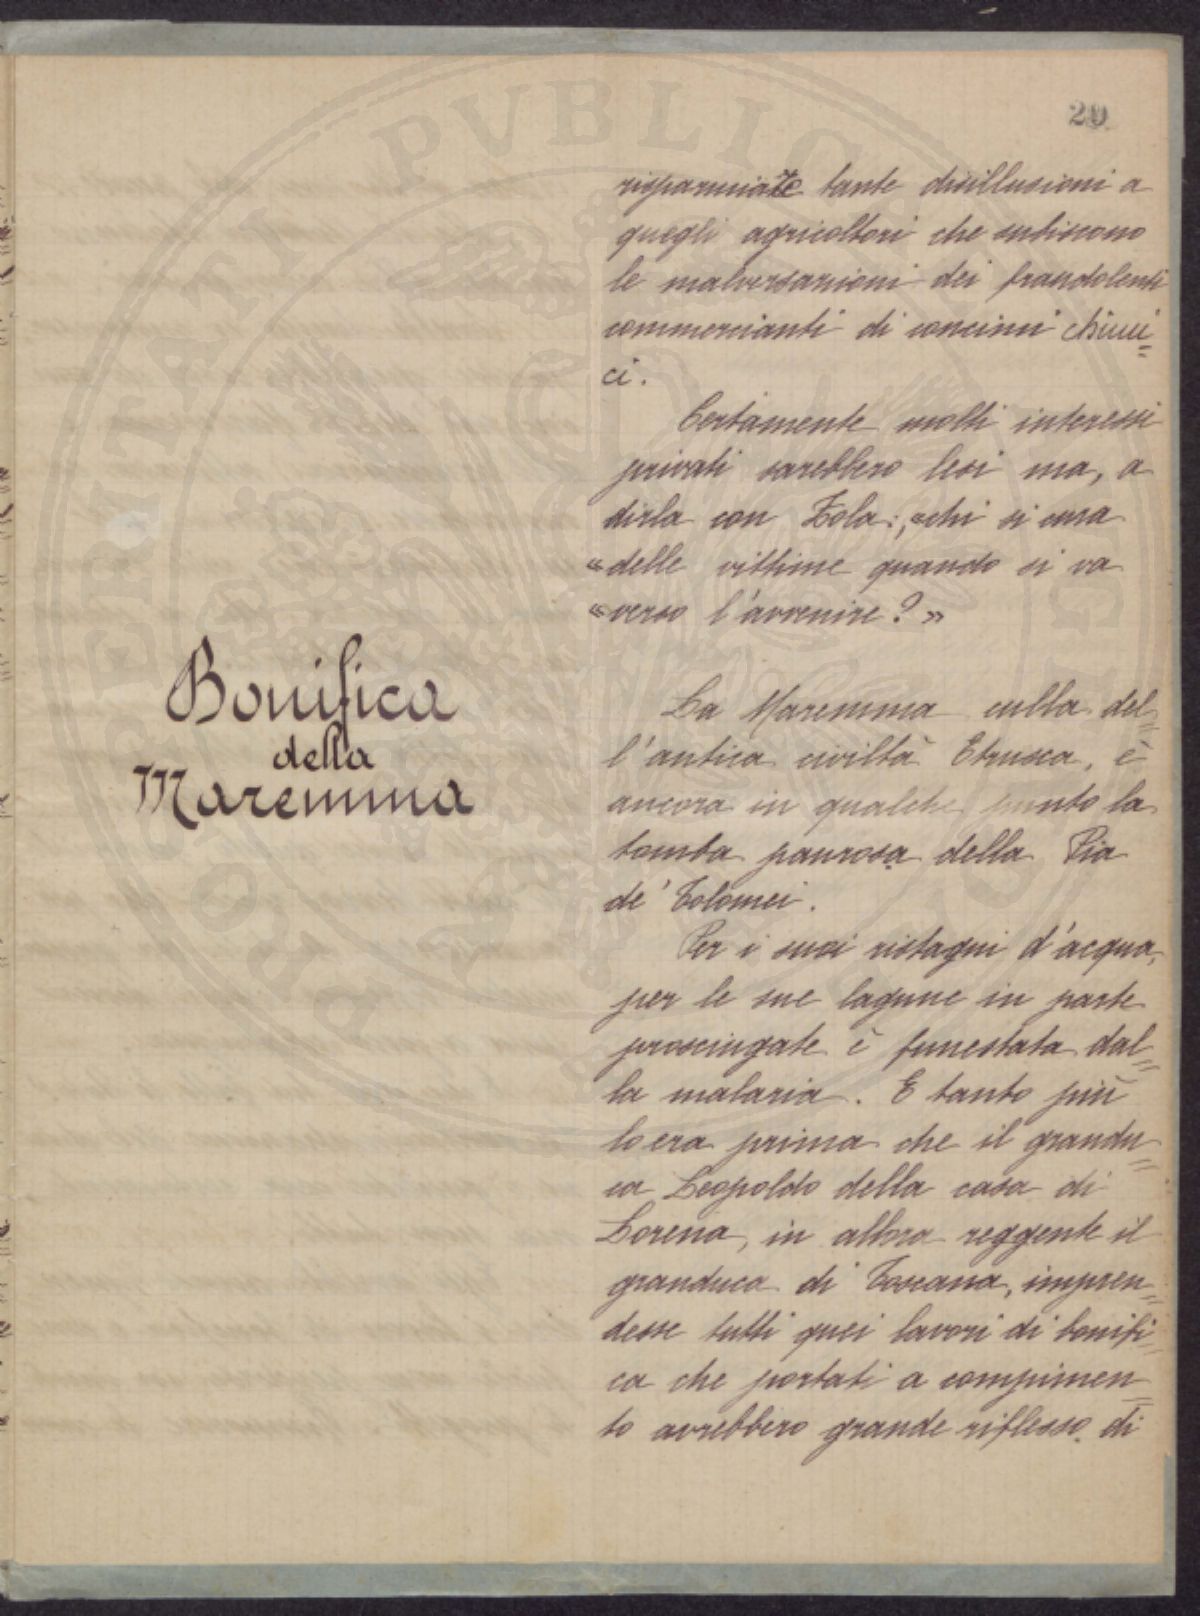 20
risparmiate tante disillusioni a
quegli agricoltori che subiscono
le malversazioni dei fraudolenti
commercianti di concimi chimi=
ci.
Certamente molti interessi
privati sarebbero lesi ma, a
dirla con Zola: "chi si cura
"delle vittime quando si va
"verso l'avvenire?"
Bonifica
della
Maremma
La Maremma culla del=
l'antica civiltà Etrusca, è
ancora in qualche punto la
tomba paurosa della Pia
de' Tolomei.
Per i suoi ristagni d'acqua,
per le sue lagune in parte
prosciugate è funestata dal=
la malaria. E tanto più
lo era prima che il grandu=
ca Leopoldo della casa di
Lorena, in allora reggente il
granduca di Toscana, impren=
desse tutti quei lavori di bonifi=
ca che portati a compimen=
to avrebbero grande riflesso di
PROSPERITATI PVBLICAE